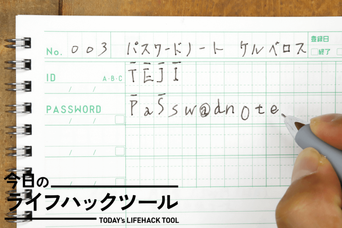 No. 003 パスワードノート ケルベロス 登録日
□終了
ID A・B・C TEJI
PASSWORD PaSsw@dnote.
今日の
ライフハックツール
TODAY's LIFEHACK TOOL